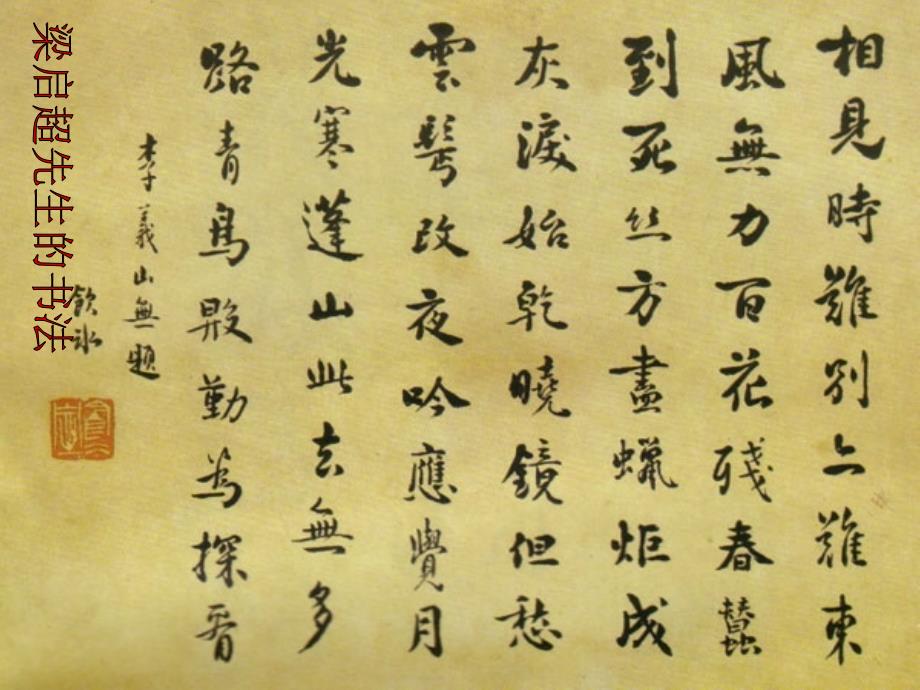 相見時難別亦難東
風無力百花殘春蠶
到死丝方盡蠟炬成
灰淚始乾曉鏡但愁
雲鬢改夜吟應覺月
光寒蓬山此去無多
路青鳥殷勤為探看
李義山無題
飲冰
梁启超先生的书法